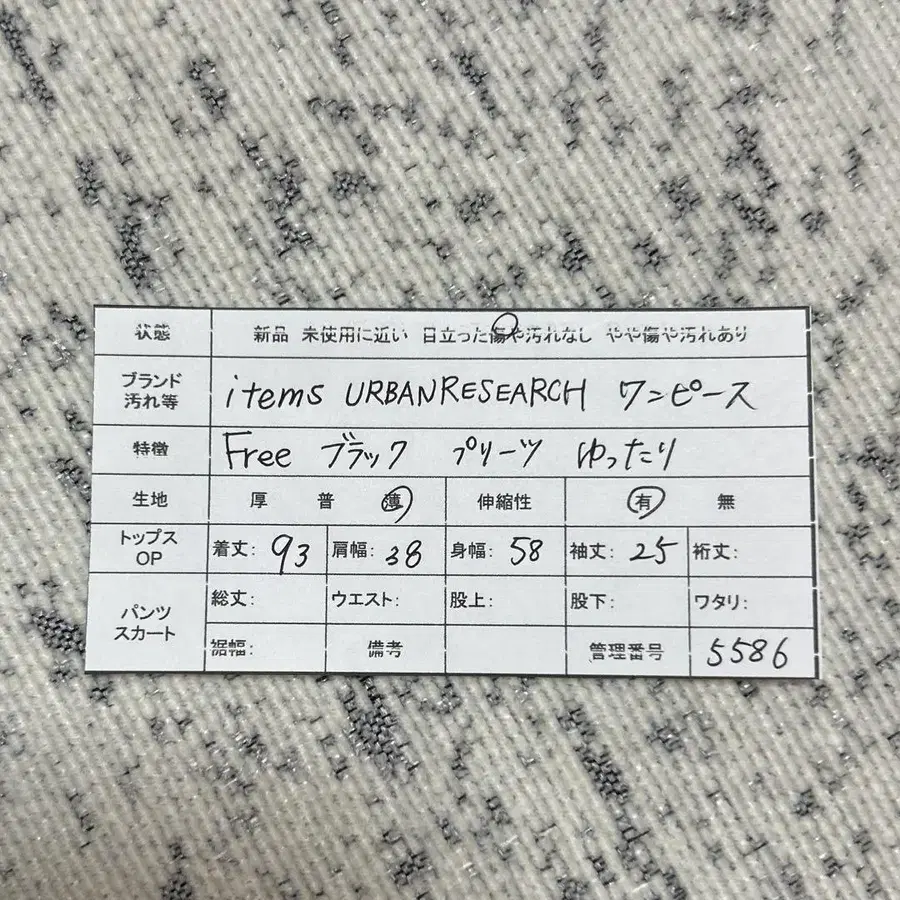 状態 新品 未使用に近い 目立った傷や汚れなし やや傷や汚れあり
ブランド
汚れ等
items URBAN RESEARCH ワンピース
特徴 Free ブラック プリーツ ゆったり
生地 厚 普 薄 伸縮性 有 無
トップス
OP
着丈: 93 肩幅: 38 身幅: 58 袖丈: 25 裄丈:
パンツ
スカート
総丈: ウエスト: 股上: 股下: ワタリ:
裾幅: 備考 管理番号 5586